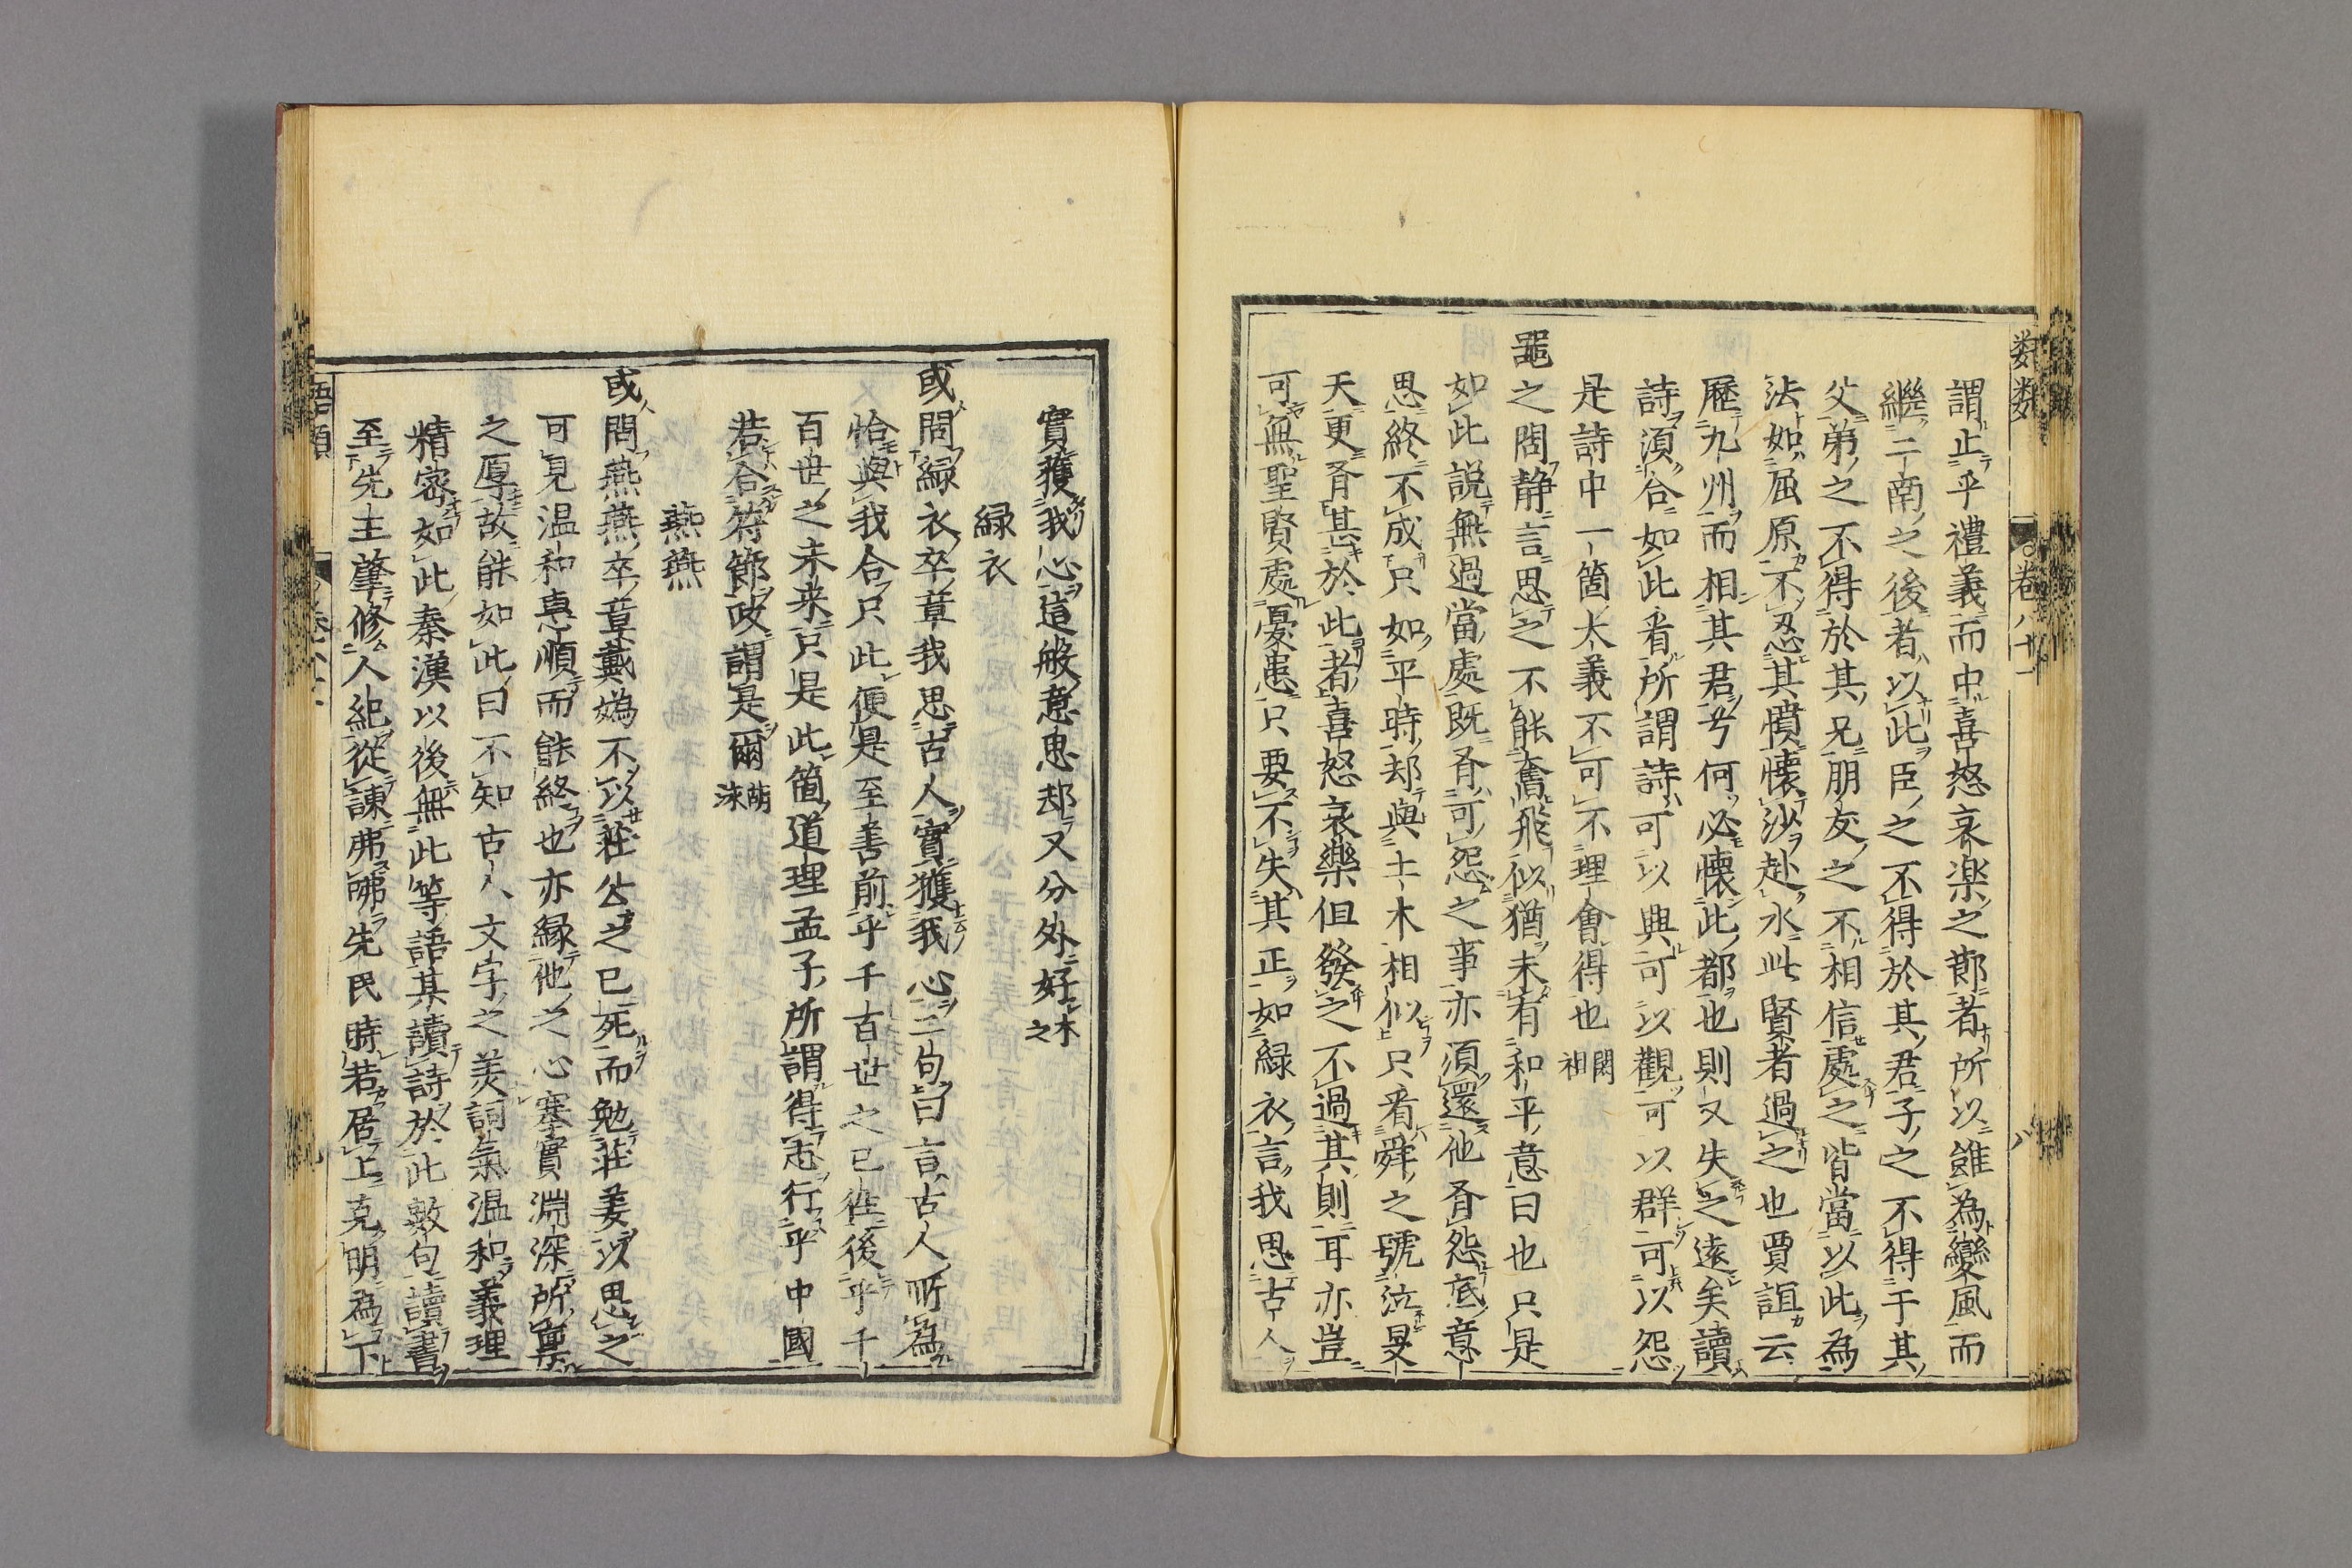 謂止乎禮義而中喜怒哀楽之節者所以雖為變風而
繼二南之後者以此臣之不得於其君子之不得于其
父弟之不得於其兄朋友之不相信處之皆當以此為
法如屈原不忍其憤懐沙赴水此賢者過之也賈誼云
歷九州而相其君兮何必懐此都也則又失之遠矣讀
詩須合如此看所謂詩可以興可以觀可以群可以怨
是詩中一箇大義不可不理會得也 閎祖
器之問静言思之不能奮飛似猶未有和平意曰也只是
如此説無過當處既有可怨之事亦須還他有怨底意
思終不成只如平時却與土木相似只看舜之號泣旻
天更有甚於此者喜怒哀樂但發之不過其則耳亦豈
可無聖賢處憂患只要不失其正如緑衣言我思古人
實獲我心這般意思却又分外好 木之
緑衣
或問緑衣卒章我思古人實獲我心二句曰言古人所為
恰與我合只此便是至善前乎千百世之已往後乎千
百世之未来只是此箇道理孟子所謂得志行乎中國
若合符節政謂是爾 蘭洙
燕燕
或問燕燕卒章戴媯不以莊公之已死而勉莊姜以思之
可見温和惠順而能終也亦緑他之心塞實淵深所稟
之厚故能如此曰不知古人文字之美詞氣温和義理
精密如此秦漢以後無此等語某讀詩於此數句讀書
至先王肇修人紀從諫弗咈先民時若居上克明為下
類 卷八十一 八
語類